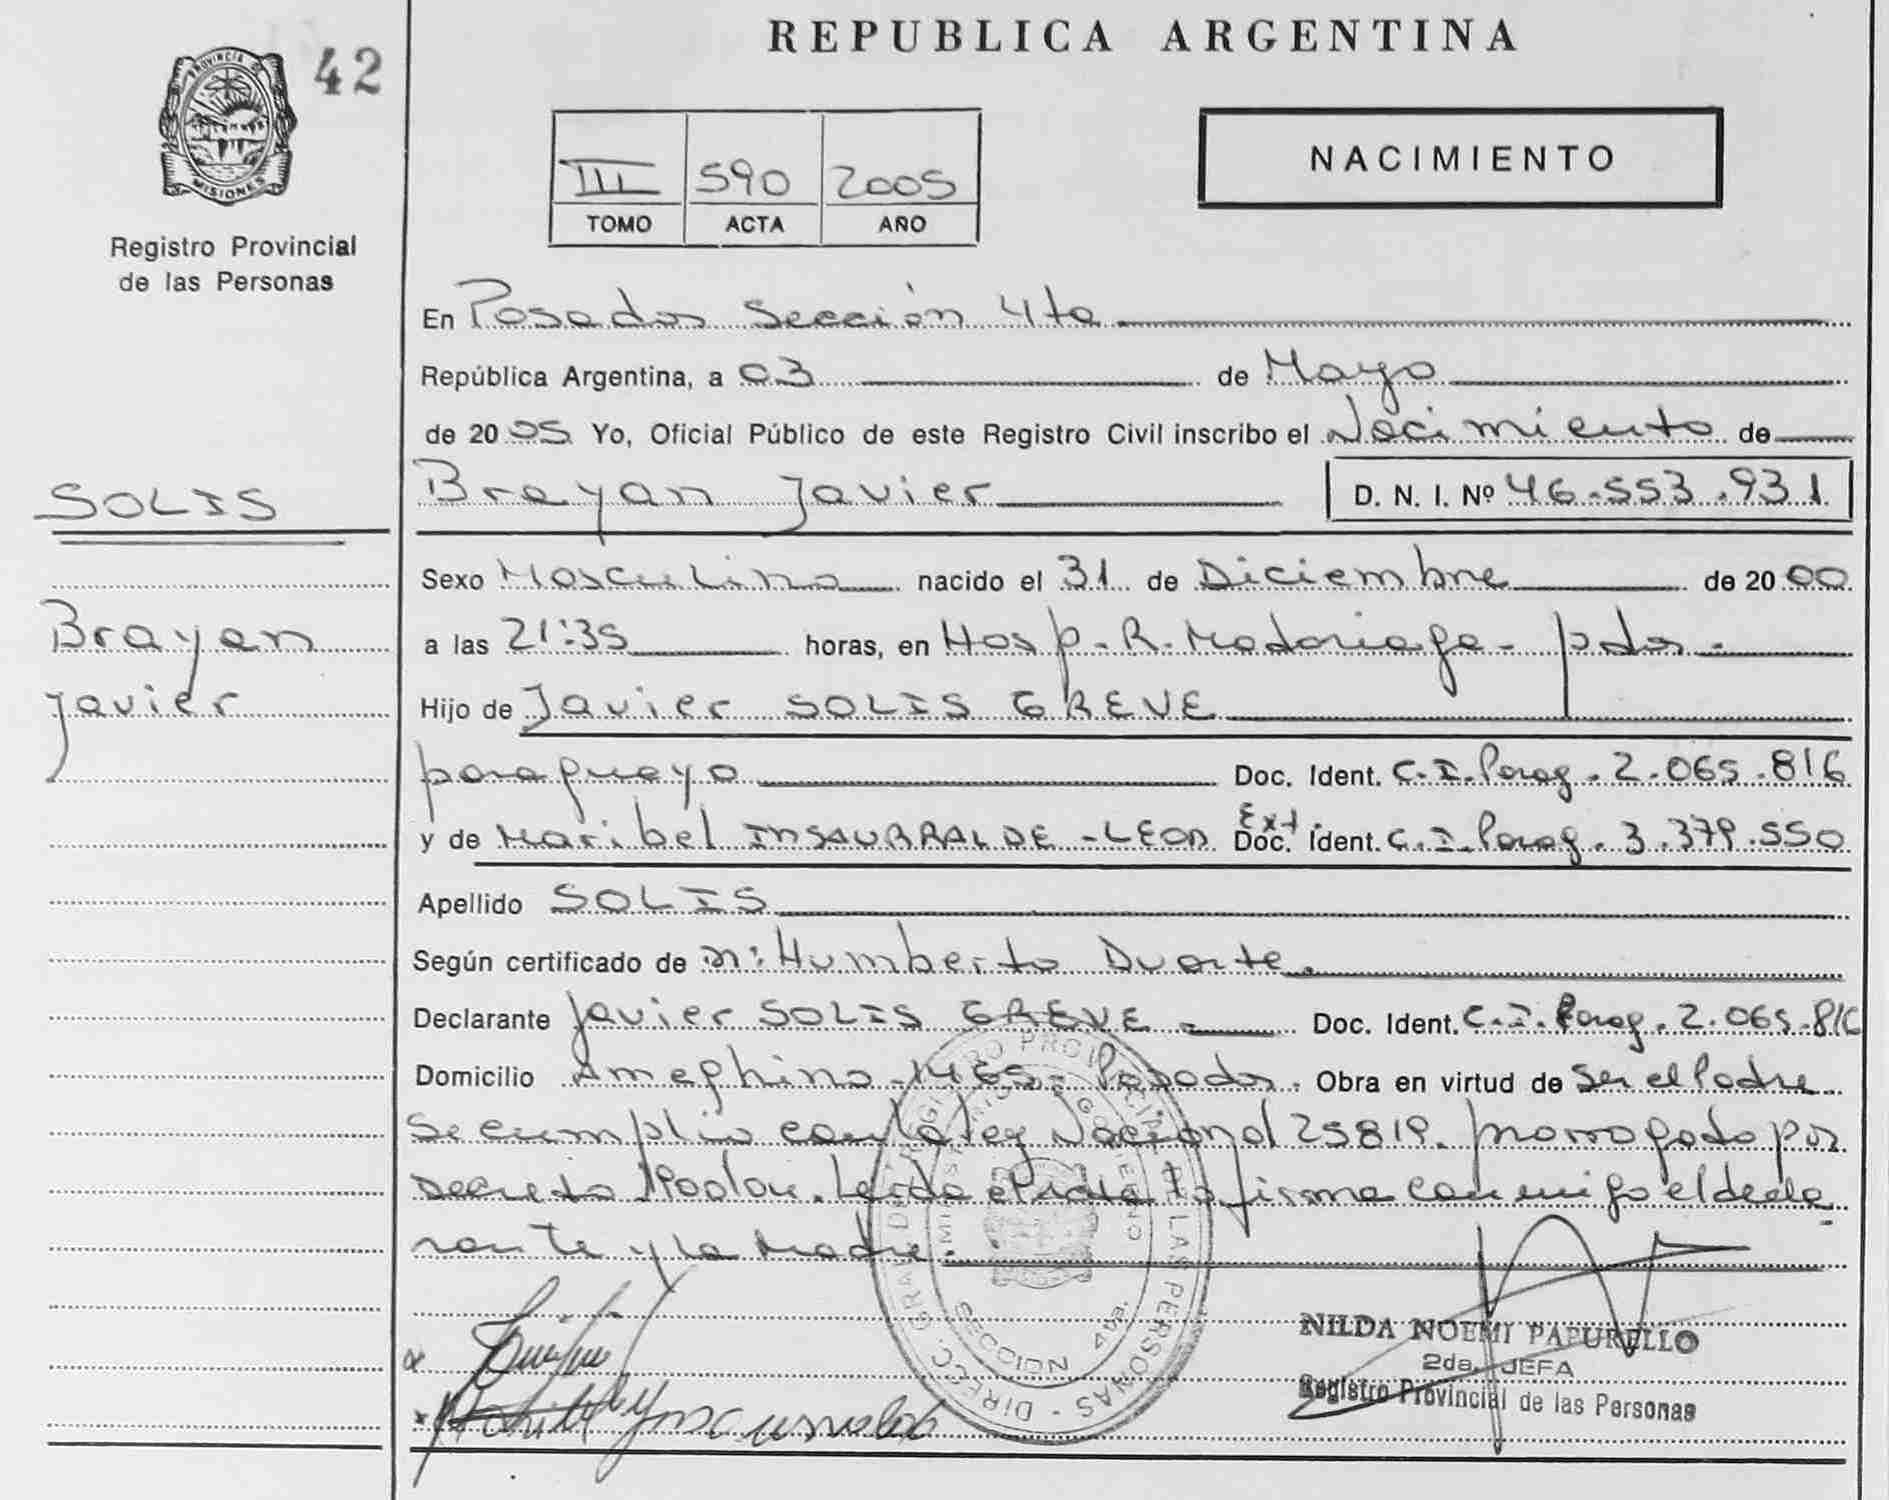 42
REPUBLICA ARGENTINA
PROVINCIA DE
MISIONES
Registro Provincial
de las Personas
III 590 2005
TOMO ACTA AÑO
NACIMIENTO
En Posadas Sección 4ta
República Argentina, a 03 de Mayo
de 2005 Yo, Oficial Público de este Registro Civil inscribo el Nacimiento de
SOLIS
Brayan Javier D. N. I. Nº 46.553.931
Sexo Masculino nacido el 31 de Diciembre de 2000
Brayan
Javier
a las 21:35 horas, en Hosp. R. Madariaga - pdas.-
Hijo de Javier SOLIS GREVE
paraguayo Doc. Ident. C.I. Parag. 2.065.816
y de Maribel INSAURRALDE - LEON Ext. Doc. Ident. C.I. Parag. 3.379.550
Apellido SOLIS
Según certificado de m: Humberto Duarte.
Declarante Javier SOLIS GREVE Doc. Ident. C.I. Parag. 2.065.816
Domicilio Ameghino 1465 - Posadas. Obra en virtud de ser el Padre
Se cumplio con la ley Nacional 25819. prorrogado por
Decreto Leida el acta firma conmigo el decla
rante y la Madre.
DIRECC. GRAL. DEL REGISTRO PROVINCIAL DE LAS PERSONAS
MINISTERIO DE GOBIERNO
SECCION 4ta.
NILDA NOEMI PAPURELLO
2da. JEFA
Registro Provincial de las Personas